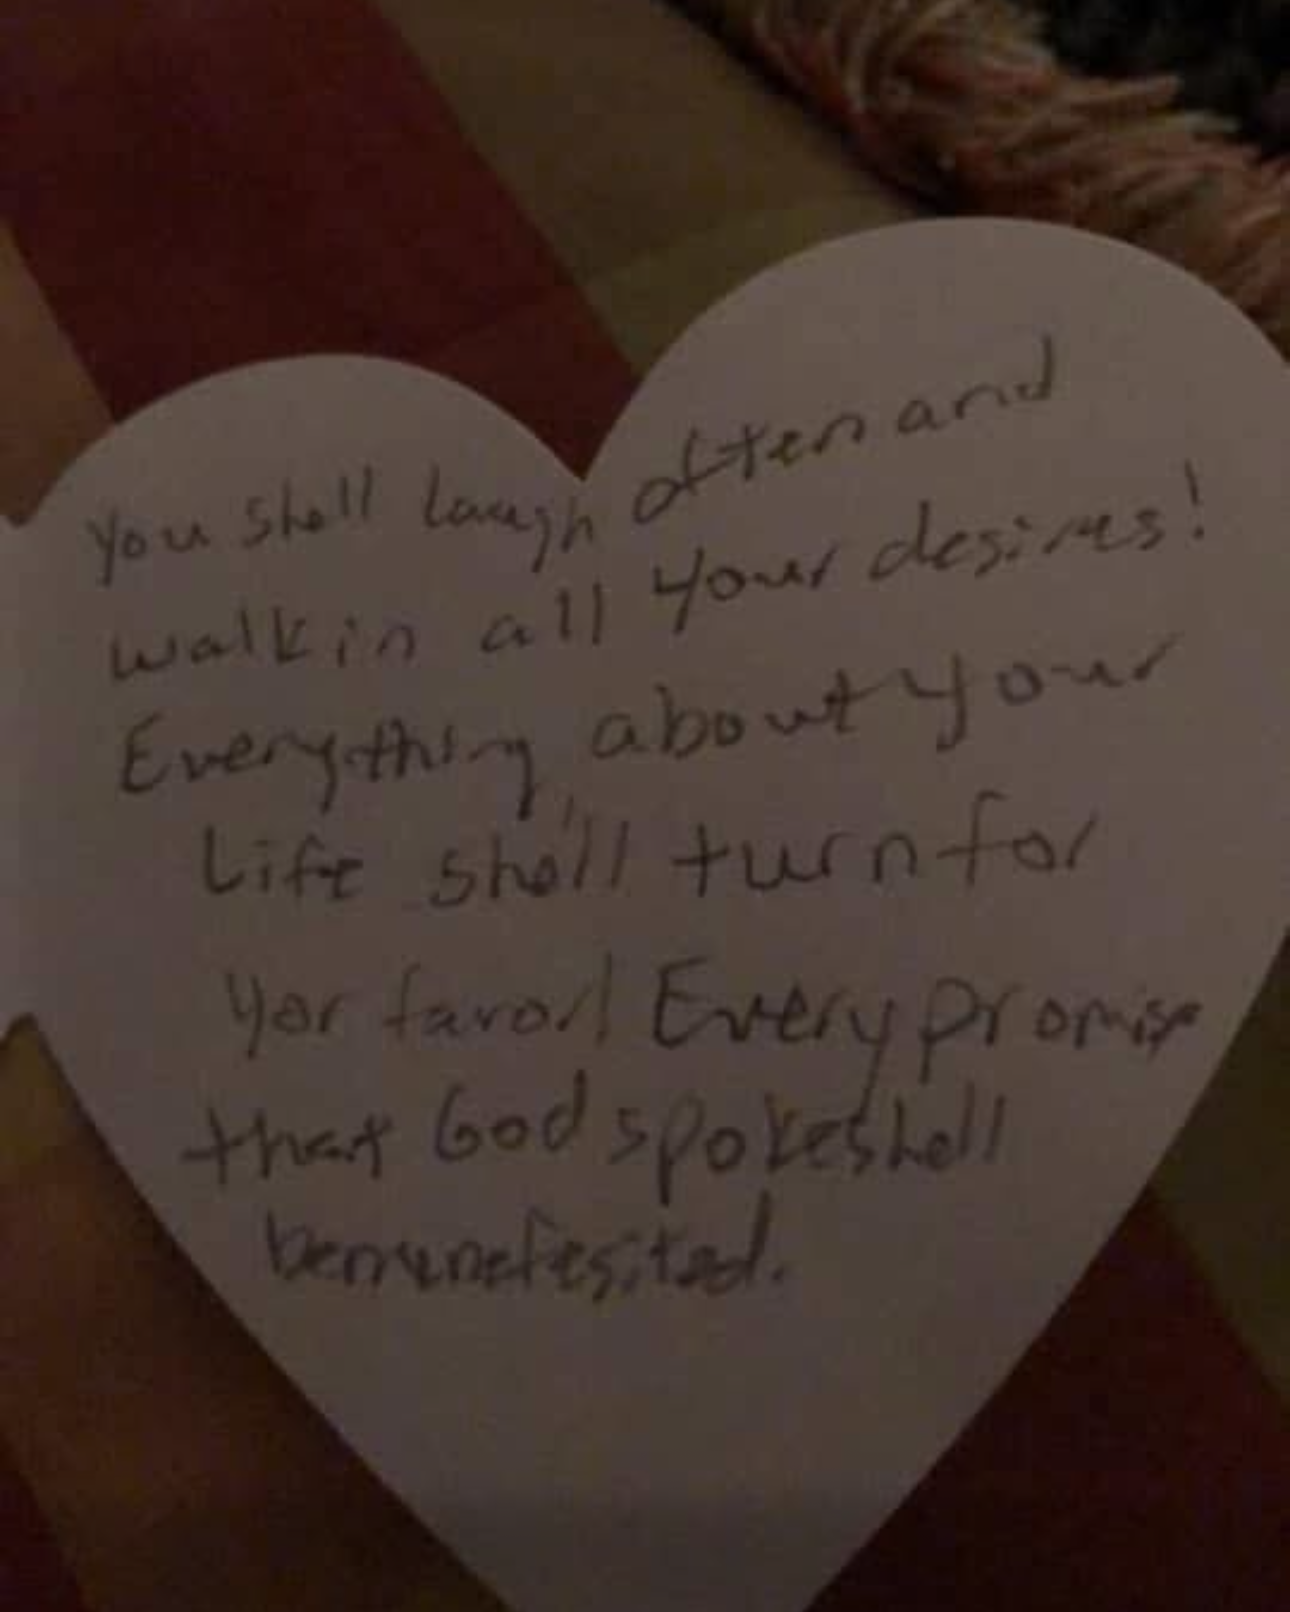 You shall laugh often and
walk in all your desires!
Everything about your
Life shall turn for
yor favor! Every promise
that God spoke shall
be